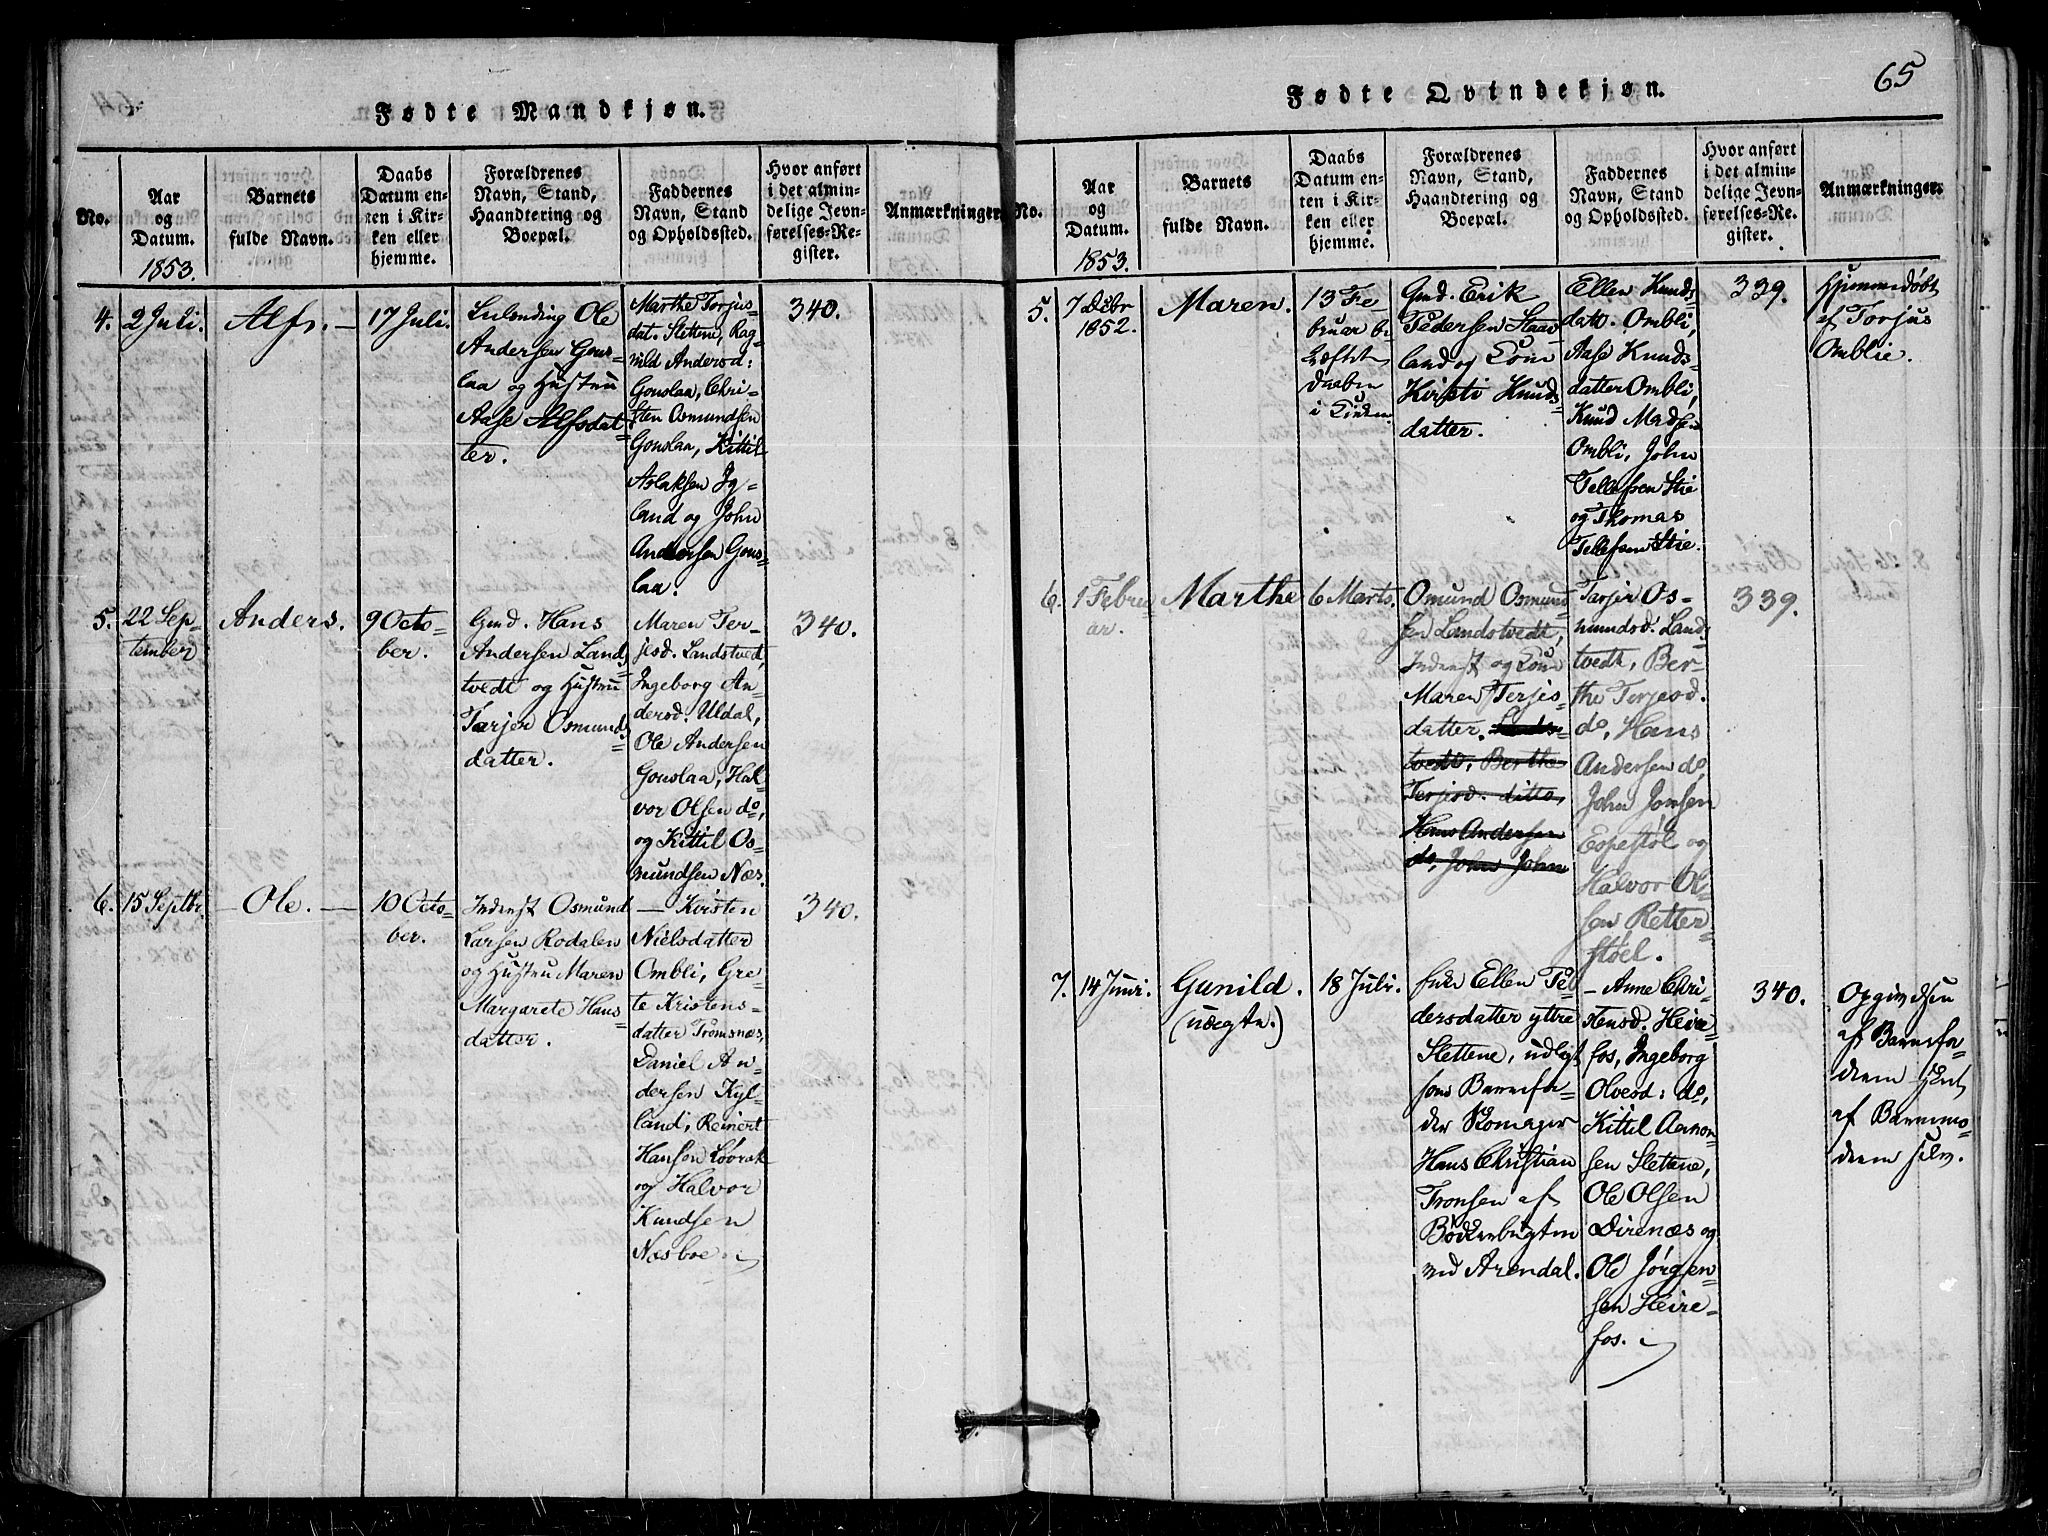 65
Fødte Mandkjøn.
No.
Aar
og
Datum.
1853.
Barnets
fulde Navn.
Daabs
Datum en-
ten i Kir-
ken eller
hjemme.
Forældrenes
Navn, Stand,
Haandtering og
Boepæl.
Faddernes
Navn, Stand
og Opholdssted.
Hvor anført
i det almin-
delige Jevn-
førelses-Re-
gister.
Anmærkninger.
4.
2 Juli.
Alf. —
17 Juli.
Ole
Andersen Gous-
laa og Hustru
Aase Alfsdat-
ter.
Marthe Torjus-
dat. Slettene, Rag-
nild Andersd:
Gouslaa, Chri-
sten Osmundsen
Gouslaa, Kittil
Aslaksen Ig-
land og John
Andersen Gous-
laa.
340.
5.
22 Sep-
tember
Anders.
9 Octo-
ber.
Gmd. Hans
Andersen Land-
tvedt og Hustru
Tarjer Osmunds-
datter.
Maren Ter-
jesd. Landstvedt,
Ingeborg An-
dersd. Uldal,
Ole Andersen
Gouslaa, Hal-
vor Olsen do,
og Kittil Os-
mundsen Næs.
340.
6.
15 Septbr.
— Ole. —
10 Octo-
ber.
Inderst Osmund
Larsen Rodalen
og Hustru Maren
Margarete Hans-
datter.
— Kristen
Nielsdatter
Ombli, Gre-
te Kristens-
datter Tromsnæs,
Daniel An-
dersen Kyl-
land, Reinert
Hansen Løvrak
og Halvor
Knudsen
Næsboe.
340.
Fødte Qvindekjøn.
No.
Aar
og
Datum.
1853.
Barnets
fulde Navn.
Daabs
Datum en-
ten i Kir-
ken eller
hjemme.
Forældrenes
Navn, Stand,
Haandtering og
Boepæl.
Faddernes
Navn, Stand
og Opholdssted.
Hvor anført
i det almin-
delige Jevn-
førelses-Re-
gister.
Anmærkninger.
5.
7 Debr
1852.
Maren.
13 Fe
bruar be
kræftet
Daaben
i Kirken
Gmd. Erik
Pedersen Staa-
land og Kone
Kirsti Knuds-
datter.
Ellen Knuds-
datt. Ombli,
Aase Knuds-
datter Ombli,
Knud Madsen
Ombli, John
Tellefsen Stie
og Thomas
Tellefsen Stie.
339.
Hjemmedøbt
af Torjus
Omblie.
6.
1 Febru-
ar.
Marthe
6 Marts.
Omund Osmund
sen Landstvedt,
Inderst og Kone
Maren Terjes-
datter. Lands-
tvedt, Berthe
Terjesd. ditto,
Hans Andersen
do, John John
Tarjer Os-
mundsd. Lands-
tvedt, Ber-
the Terjesd.
do, Hans
Andersen do
John Jonsen
Espestøl og
Halvor Ol-
sen Retter-
støel.
339.
7.
14 Juni.
Gunild.
(uægte.)
18 Juli.
Ellen Pe-
dersdatter yttre
Slettene, udlagt
som Barnefa-
der Skomager
Hans Christian
Tronsen af
Bødkerbugten
ved Arendal.
— Anne Chri-
stensd. Heire-
fos, Ingeborg
Olvesd: do,
Kittil Aanon-
sen Slettene,
Ole Olsen
Direnæs og
Ole Jørgen-
sen Heire-
fos.
340.
Opgivelsen
af Barnefa-
deren
af Barnemo-
deren selv.